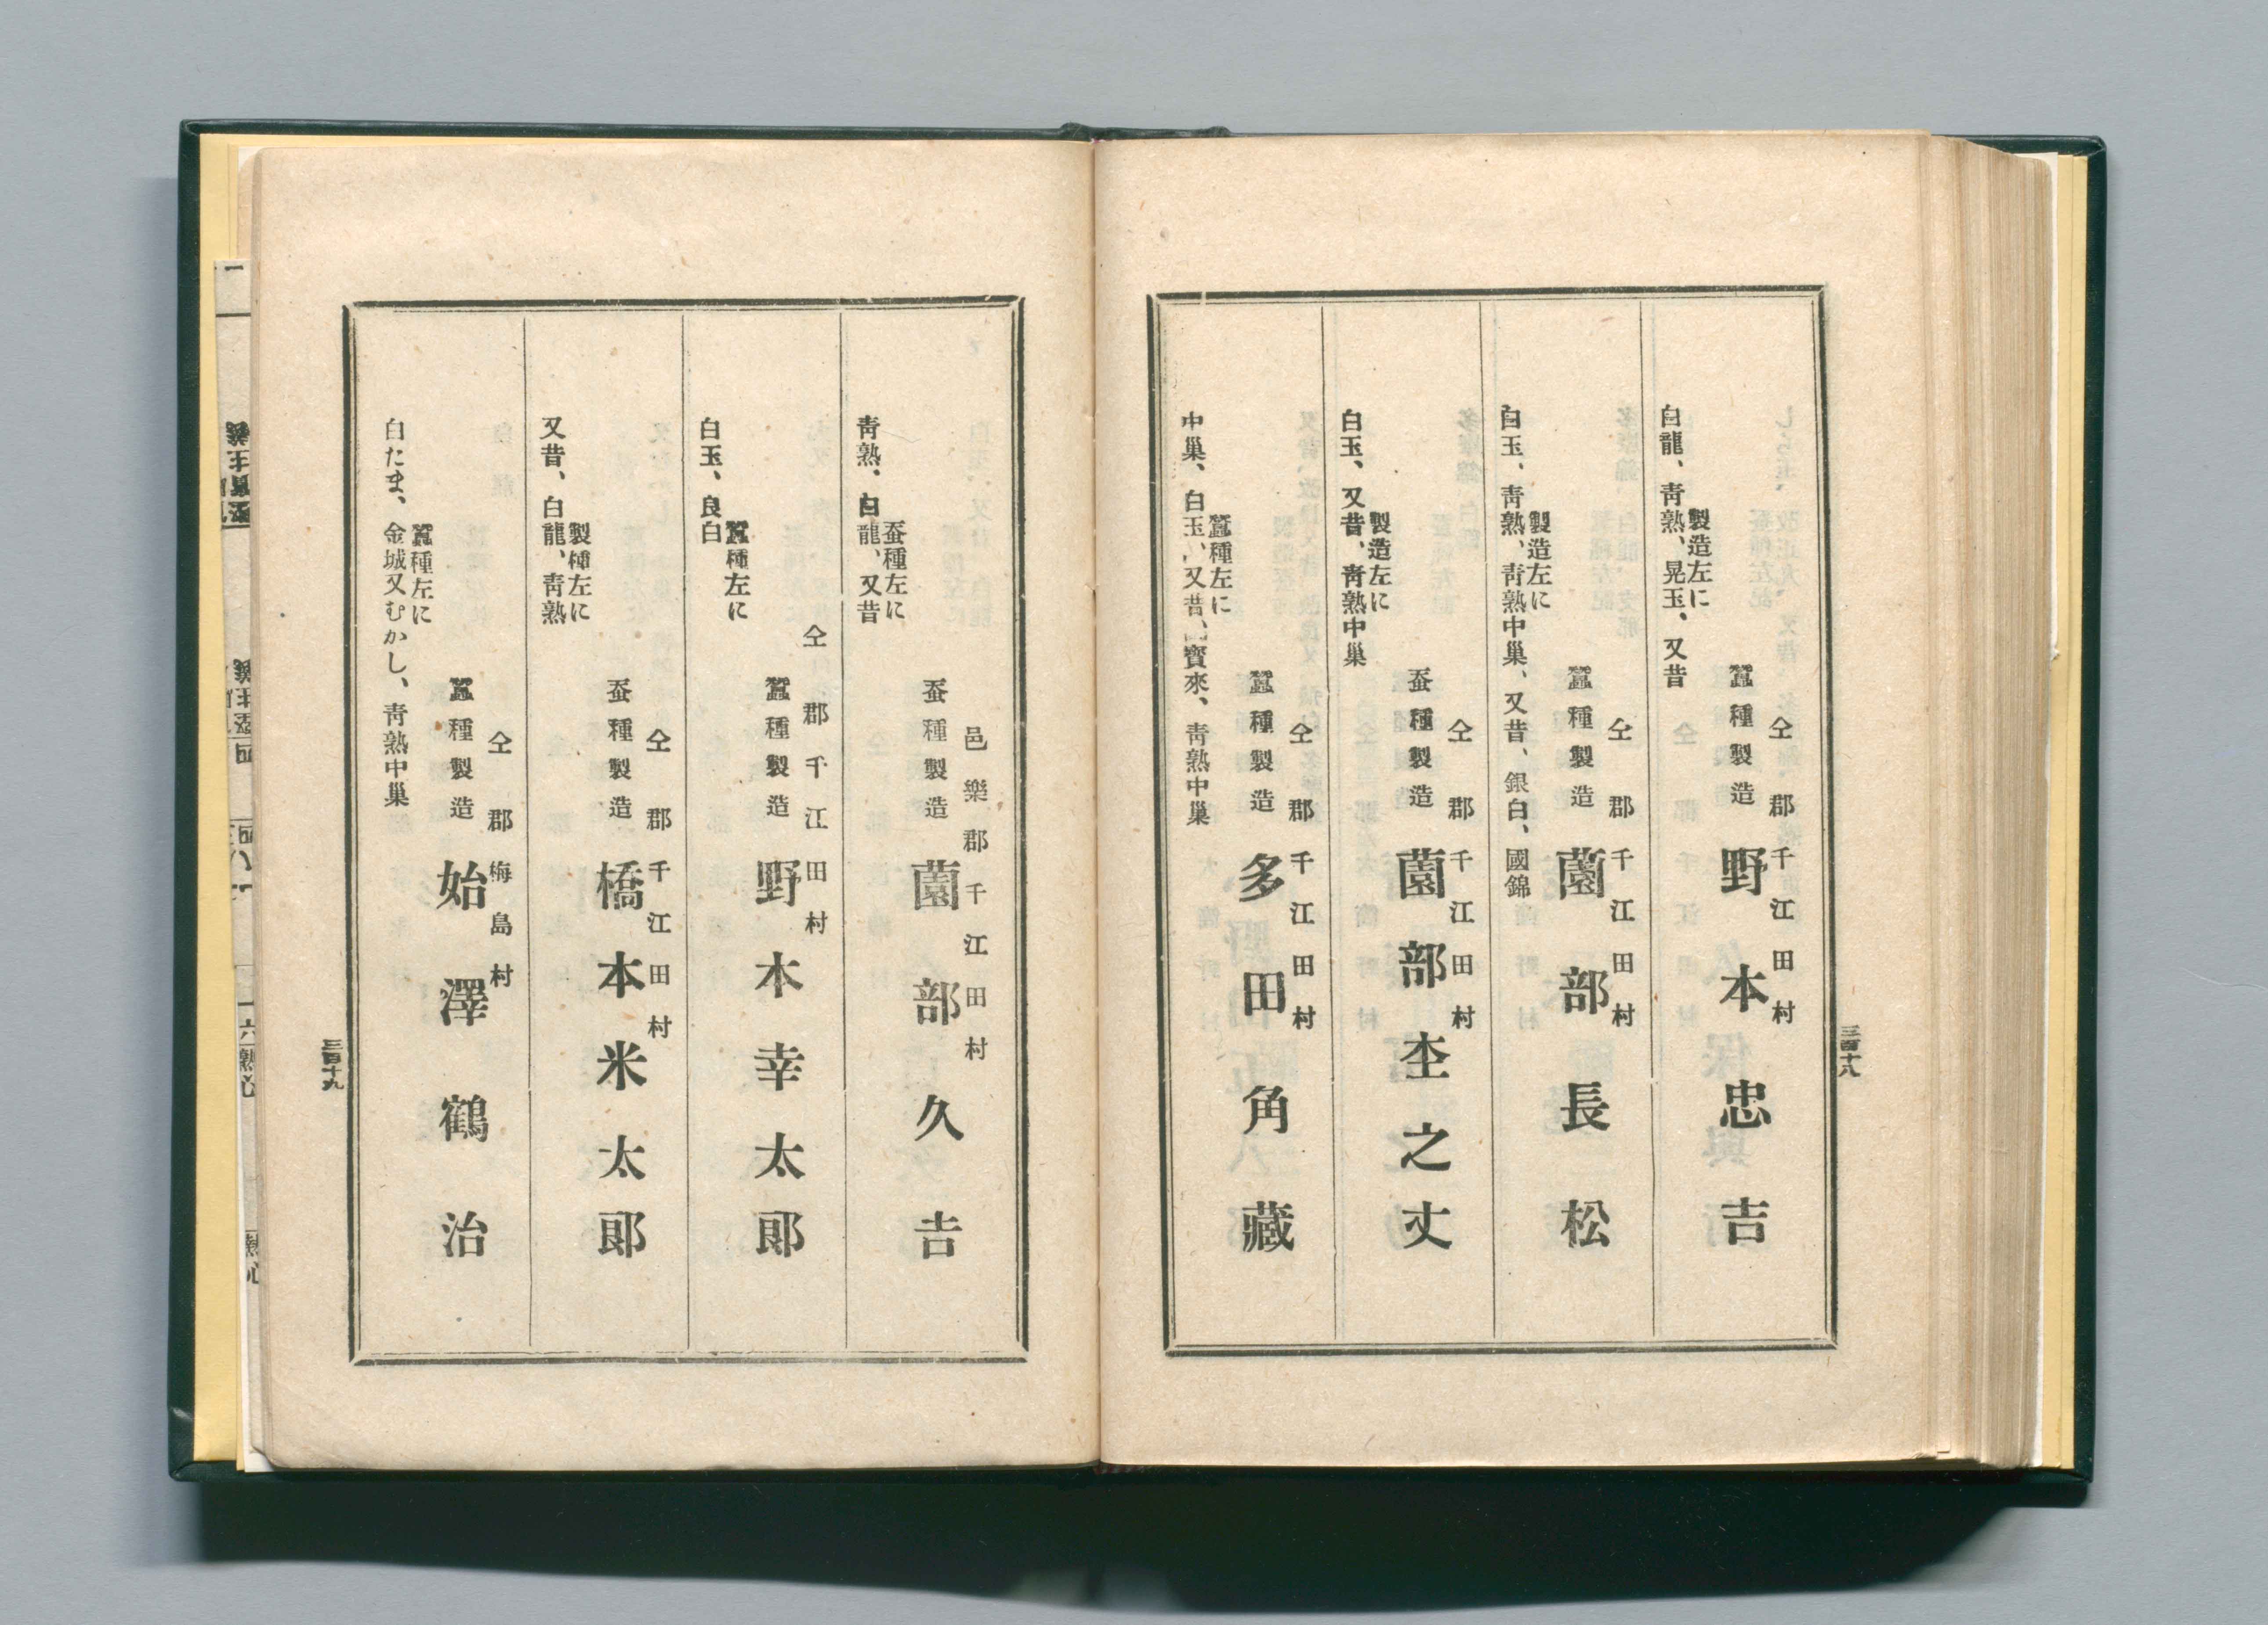 仝郡千江田村
蠶種製造 野本忠吉
製造左に
白龍、靑熟、晃玉、又昔
仝郡千江田村
蠶種製造 薗部長松
製造左に
白玉、靑熟、靑熟中巢、又昔、銀白、國錦
仝郡千江田村
蚕種製造 薗部杢之丈
製造左に
白玉、又昔、靑熟中巢
仝郡千江田村
蠶種製造 多田角藏
蠶種左に
中巢、白玉、又昔、寶來、靑熟中巢
三百十八
邑樂郡千江田村
蚕種製造 薗部久吉
蚕種左に
靑熟、白龍、又昔
仝郡千江田村
蠶種製造 野本幸太郞
蠶種左に
白玉、良白
仝郡千江田村
蚕種製造 橋本米太郞
製種左に
又昔、白龍、靑熟
仝郡梅島村
蠶種製造 始澤鶴治
蠶種左に
白たま、金城又むかし、靑熟中巢
三百十九